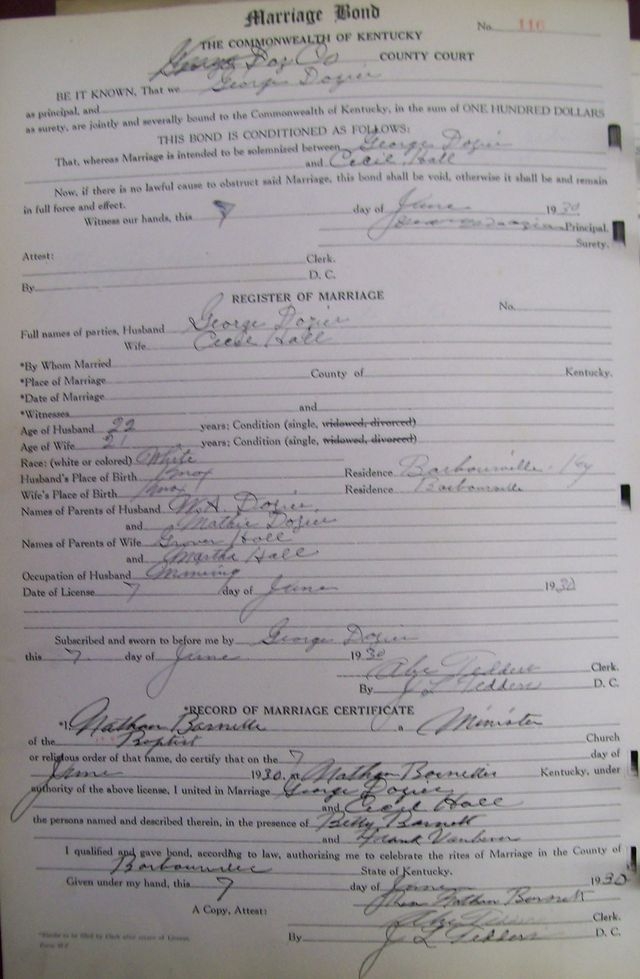 Marriage Bond
No. 116
THE COMMONWEALTH OF KENTUCKY
COUNTY COURT
BE IT KNOWN, That we George Dozier
as principal, and
as surety, are jointly and severally bound to the Commonwealth of Kentucky, in the sum of ONE HUNDRED DOLLARS
THIS BOND IS CONDITIONED AS FOLLOWS:
That, whereas Marriage is intended to be solemnized between George Dozier
and Cecil Hall
Now, if there is no lawful cause to obstruct said Marriage, this bond shall be void, otherwise it shall be and remain
in full force and effect.
Witness our hands, this 7 day of June 1930
Principal.
Surety.
Attest: Clerk.
By D. C.
REGISTER OF MARRIAGE
No.
Full names of parties, Husband George Dozier
Wife Cecil Hall
*By Whom Married
*Place of Marriage County of Kentucky.
*Date of Marriage
*Witnesses and
Age of Husband 22 years; Condition (single, widowed, divorced)
Age of Wife 21 years; Condition (single, widowed, divorced)
Race: (white or colored) White
Husband's Place of Birth Knox Residence Barbourville Ky
Wife's Place of Birth Knox Residence Barbourville
Names of Parents of Husband W. A. Dozier
and Mathie Dozier
Names of Parents of Wife Grover Hall
and Martha Hall
Occupation of Husband Mineing
Date of License 7 day of June 1930
Subscribed and sworn to before me by George Dozier
this 7 day of June 1930
Abe Tedders Clerk.
By J L Tedders D. C.
*RECORD OF MARRIAGE CERTIFICATE
*I, Nathan Barnette a Minister
of the Baptist Church
or religious order of that name, do certify that on the 7 day of
June 1930, at Nathan Barnettes Kentucky, under
authority of the above license, I united in Marriage George Dozier
and Cecil Hall
the persons named and described therein, in the presence of Betty Barnett
and Frank Vanbever
I qualified and gave bond, according to law, authorizing me to celebrate the rites of Marriage in the County of
Barbourville State of Kentucky.
Given under my hand, this 7 day of June 1930
Rev Nathan Barnett
A Copy, Attest: Abe Tedders Clerk.
By J L Tedders D. C.